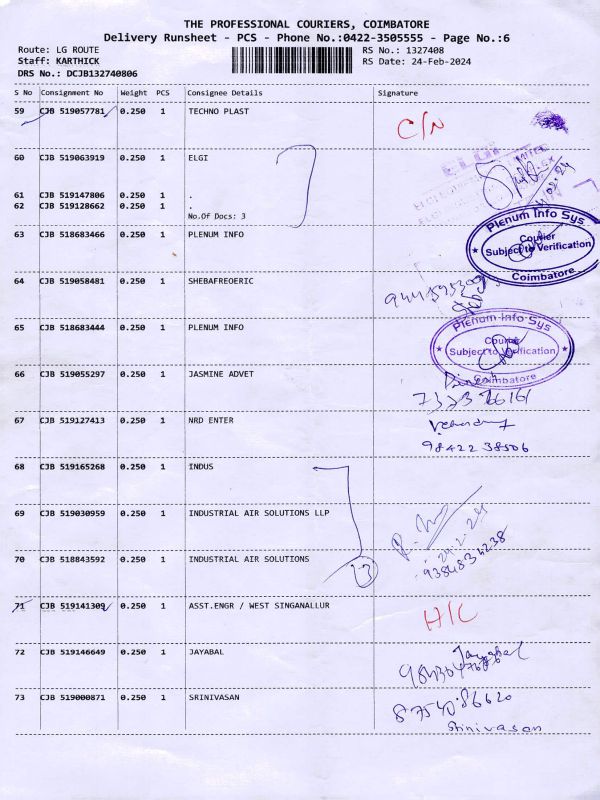 THE PROFESSIONAL COURIERS, COIMBATORE
Delivery Runsheet - PCS - Phone No.:0422-3505555 - Page No.:6
Route: LG ROUTE RS No.: 1327408
Staff: KARTHICK RS Date: 24-Feb-2024
DRS No.: DCJB132740806
S No Consignment No Weight PCS Consignee Details Signature
59 CJB 519057781 0.250 1 TECHNO PLAST C/N
60 CJB 519063919 0.250 1 ELGI
ELGI
61 CJB 519147806 0.250 1 .
62 CJB 519128662 0.250 1 .
No.Of Docs: 3
63 CJB 518683466 0.250 1 PLENUM INFO
Plenum Info Sys
Courier
Subject to Verification
Coimbatore
64 CJB 519058481 0.250 1 SHEBAFREOERIC
65 CJB 518683444 0.250 1 PLENUM INFO
Plenum Info Sys
Courier
Subject to Verification
Coimbatore
66 CJB 519055297 0.250 1 JASMINE ADVET
67 CJB 519127413 0.250 1 NRD ENTER
98422 38506
68 CJB 519165268 0.250 1 INDUS
69 CJB 519030959 0.250 1 INDUSTRIAL AIR SOLUTIONS LLP
24-2-24
9384834238
70 CJB 518843592 0.250 1 INDUSTRIAL AIR SOLUTIONS
3
71 CJB 519141309 0.250 1 ASST.ENGR / WEST SINGANALLUR H/C
72 CJB 519146649 0.250 1 JAYABAL
Jayabal
73 CJB 519000871 0.250 1 SRINIVASAN
87540 86620
Srinivasan